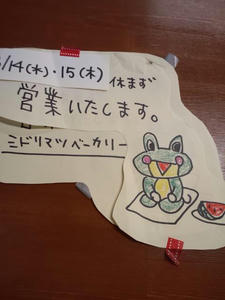 /14(水)・15(木)
休まず
営業いたします。
ミドリマツベーカリー